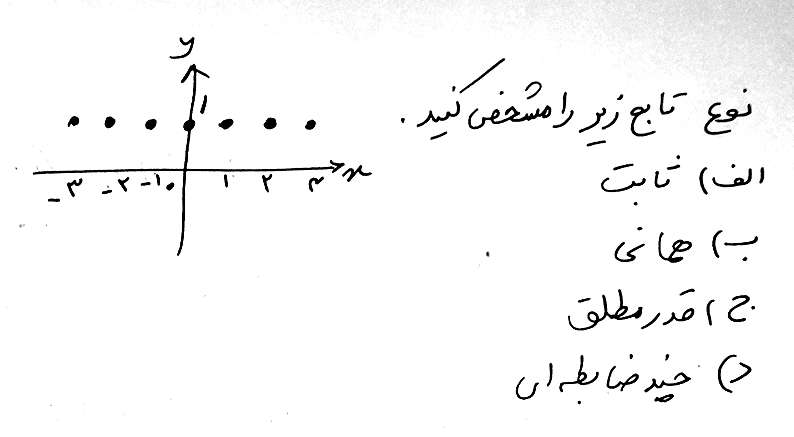 نوع تابع زیر را مشخص کنید.
الف) ثابت
ب) همانی
ج) قدر مطلق
د) چند ضابطه ای
y
۱
-۳ -۲ -۱ ۰ ۱ ۲ ۳ x